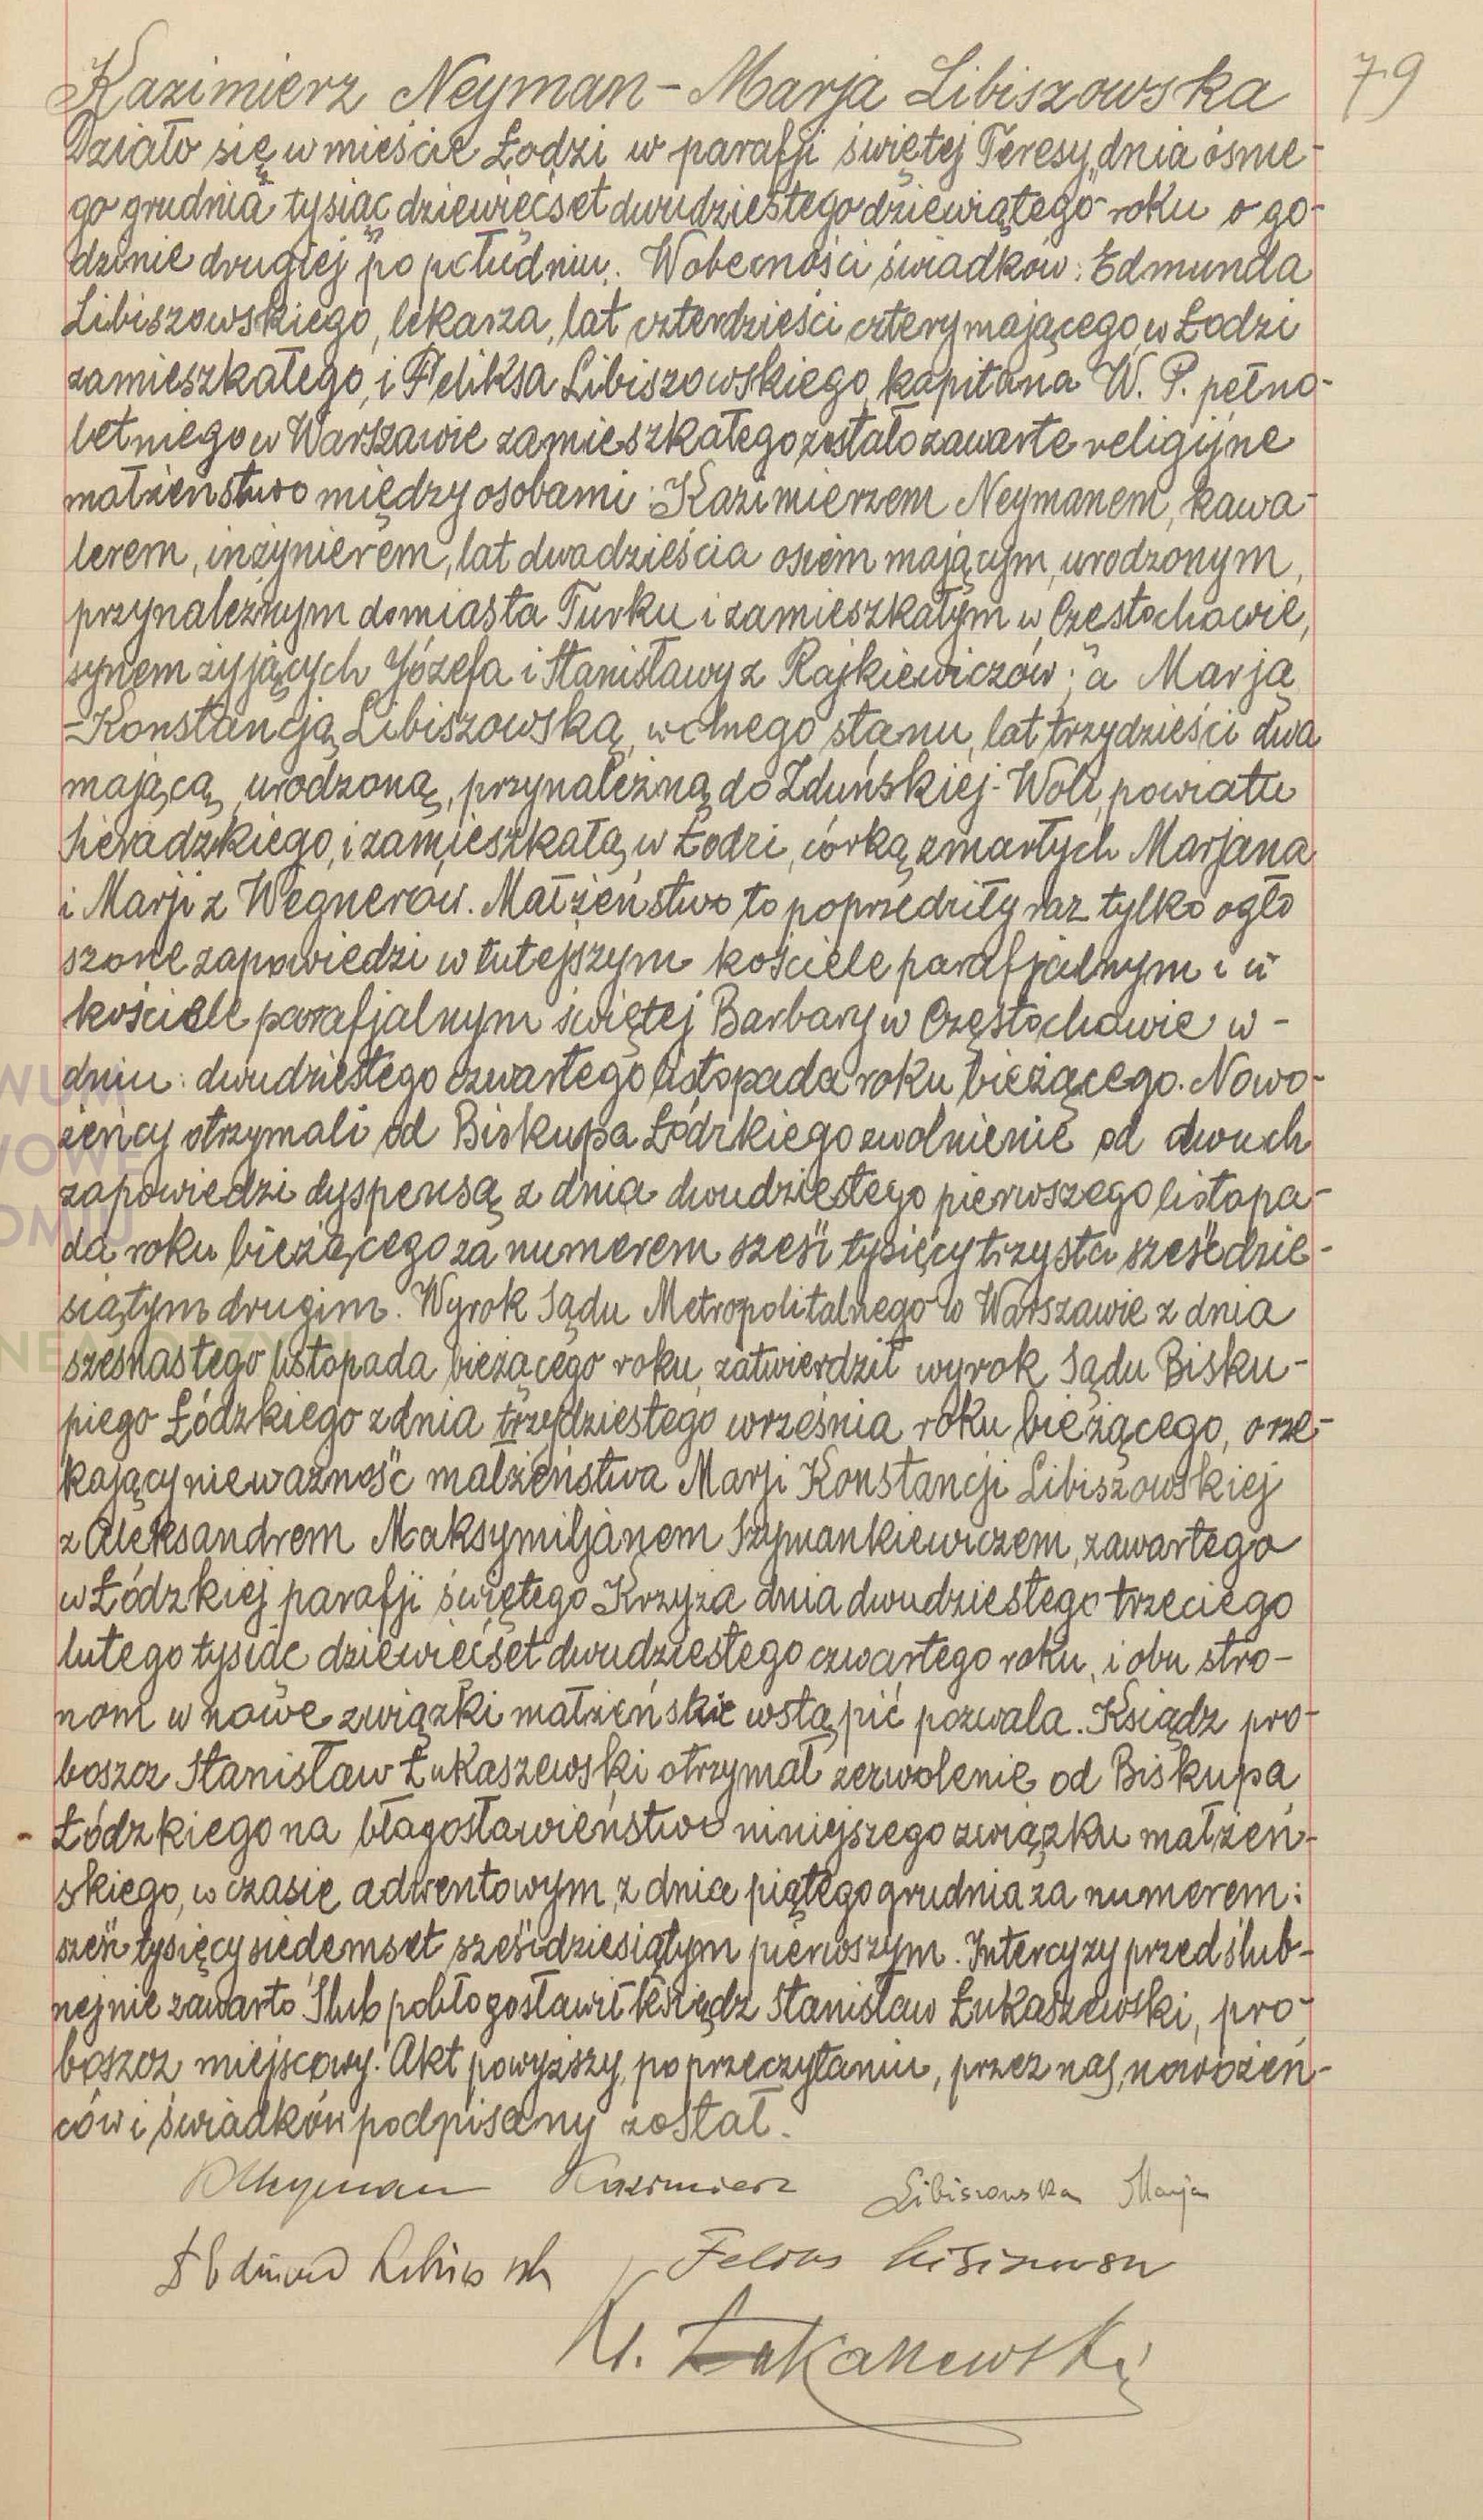 79
Kazimierz Neyman – Marja Libiszowska
Działo się w mieście Łodzi w parafji świętej Teresy, dnia ósme-
go grudnia tysiąc dziewięćset dwudziestego dziewiątego roku o go-
dzinie drugiej po południu. Wobecności świadków: Edmunda
Libiszowskiego, lekarza, lat czterdzieści cztery mającego, w Łodzi
zamieszkałego, i Feliksa Libiszowskiego, kapitana W. P. pełno-
letniego w Warszawie zamieszkałego zostało zawarte religijne
małżeństwo między osobami: Kazimierzem Neymanem, kawa-
lerem, inżynierem, lat dwadzieścia osiem mającym, urodzonym,
przynależnym do miasta Turku i zamieszkałym w Częstochowie,
synem żyjących Józefa i Stanisławy z Rajkiewiczów; a Marją
-Konstancją Libiszowską, wolnego stanu, lat trzydzieści dwa
mającą, urodzoną, przynależną do Zduńskiej-Woli, powiatu
sieradzkiego, i zamieszkałą w Łodzi, córką zmarłych Marjana
i Marji z Wegnerów. Małżeństwo to poprzedziły raz tylko ogło
szone zapowiedzi w tutejszym kościele parafjalnym i w
kościele parafjalnym świętej Barbary w Częstochowie w-
dniu: dwudziestego czwartego listopada roku bieżącego. Nowo-
żeńcy otrzymali od Biskupa Łódzkiego zwolnienie od dwuch
zapowiedzi dyspensą z dnia dwudziestego pierwszego listopa-
da roku bieżącego za numerem sześć tysięcy trzysta sześćdzie-
siątym drugim. Wyrok Sądu Metropolitalnego w Warszawie z dnia
szesnastego listopada bieżącego roku, zatwierdził wyrok Sądu Bisku-
piego Łódzkiego z dnia trzydziestego września roku bieżącego, orze-
kający nieważność małżeństwa Marji Konstancji Libiszowskiej
z Aleksandrem Maksymiljanem Szymankiewiczem, zawartego
w Łódzkiej parafji świętego Krzyża dnia dwudziestego trzeciego
lutego tysiąc dziewięćset dwudziestego czwartego roku, i obu stro-
nom w nowe związki małżeńskie wstąpić pozwala. Ksiądz pro-
boszcz Stanisław Łukaszewski otrzymał zezwolenie od Biskupa
Łódzkiego na błagosławieństwo niniejszego związku małżeń-
skiego, w czasie adwentowym, z dnia piątego grudnia za numerem:
sześć tysięcy siedemset sześćdziesiątym pierwszym. Intercyzy przedślub-
nej nie zawarto. Ślub pobłogosławił ksiądz Stanisław Łukaszewski, pro-
boszcz miejscowy. Akt powyższy, po przeczytaniu, przez nas, nowożeń-
ców i świadków podpisany został.
Neyman Kazimierz Libiszowska Marja
Edmund Feliks
Ks. Łukaszewski